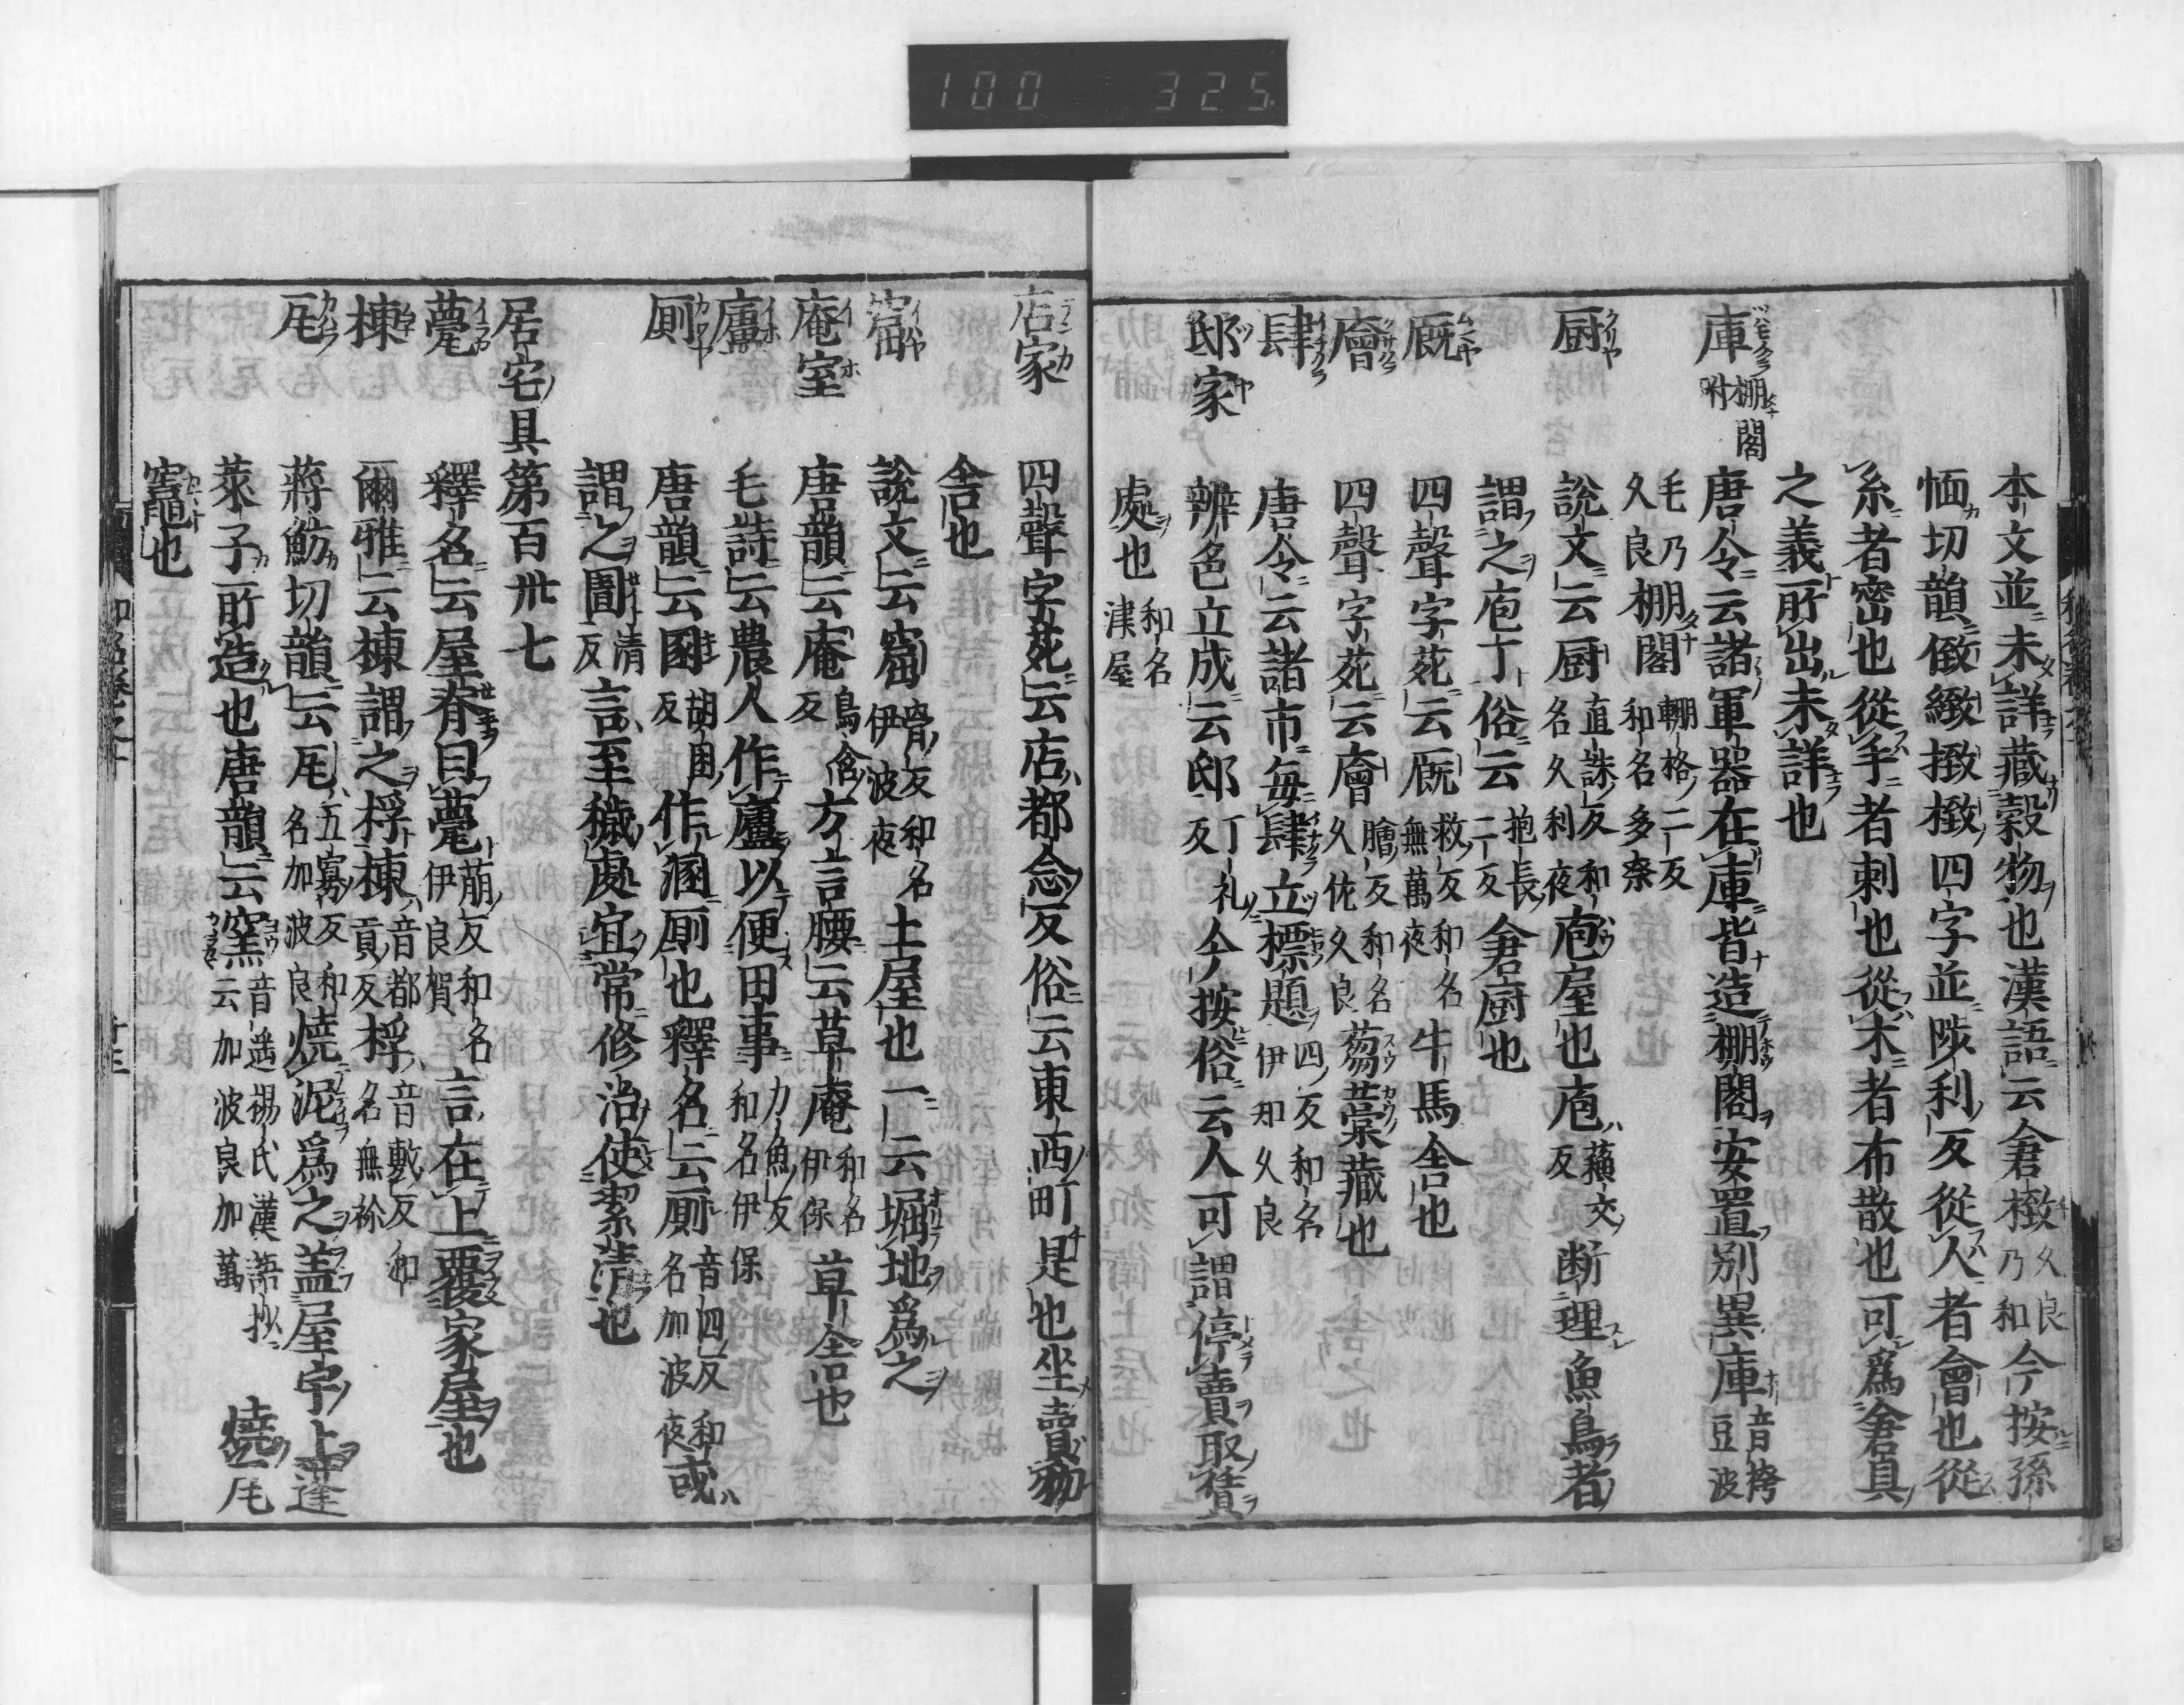 100 325
本文並未詳藏穀物也漢語云倉檄久良乃和今按孫
愐切韻傚緻撽檄四字並陟利反從人者會也從
糸者密也從手者刺也從木者布散也可爲倉具
之義所出未詳也
庫棚閣附 唐令云諸軍器在庫皆造棚閣安置別異庫音袴豆波
毛乃久良棚閣輣格二反和名多奈
厨 説文云厨直誅反和名久利夜庖屋也庖蘓交反断理魚鳥者
謂之庖丁俗云抱長二反倉厨也
厩 四聲字苑云厩救反和名無萬夜牛馬舎也
廥 四聲字苑云廥膾反和名久佐久良蒭藁藏也
肆 唐令云諸市毎肆立標題四反和名伊知久良
邸家 辨色立成云邸丁礼反今按俗云人可謂停賣取賃
處也和名津屋
店家 四聲字苑云店都念反俗云東西町是也坐賣物
舎也
窟 説文云窟骨反和名伊波夜土屋也一云堀地爲之
庵室 唐韻云庵烏含反方言腰云草庵和名伊保草舎也
廬 毛詩云農人作廬以便田事力魚反和名伊保
厠 唐韻云圂胡困反作溷厠也釋名云厠音四反和名加波夜或
謂之圊清反言至穢處宜常修治使潔清也
居宅具第百卅七
甍 釋名云屋脊曰甍萠反和名伊良賀言在上覆家屋也
棟 爾雅云棟謂之桴棟音都貢反桴音敷反和名無祢
瓦 蒋魴切韻云瓦五寡反和名加波良焼泥爲之盖屋宇上蓬
萊子所造也唐韻云窯音遥楊氏漢語抄云加波良加萬燒瓦
竈也